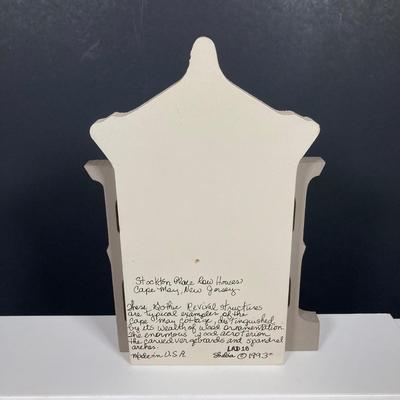 Stockton Place Row Houses
Cape May, New Jersey
These Gothic Revival structures
are typical examples of the
Cape May cottage, distinguished
by its wealth of wood ornamentation
the enormous wood acroterion,
the carved vergeboards and spandrel
arches.
LAD 18
Made in U.S.A. Sheila © 1993